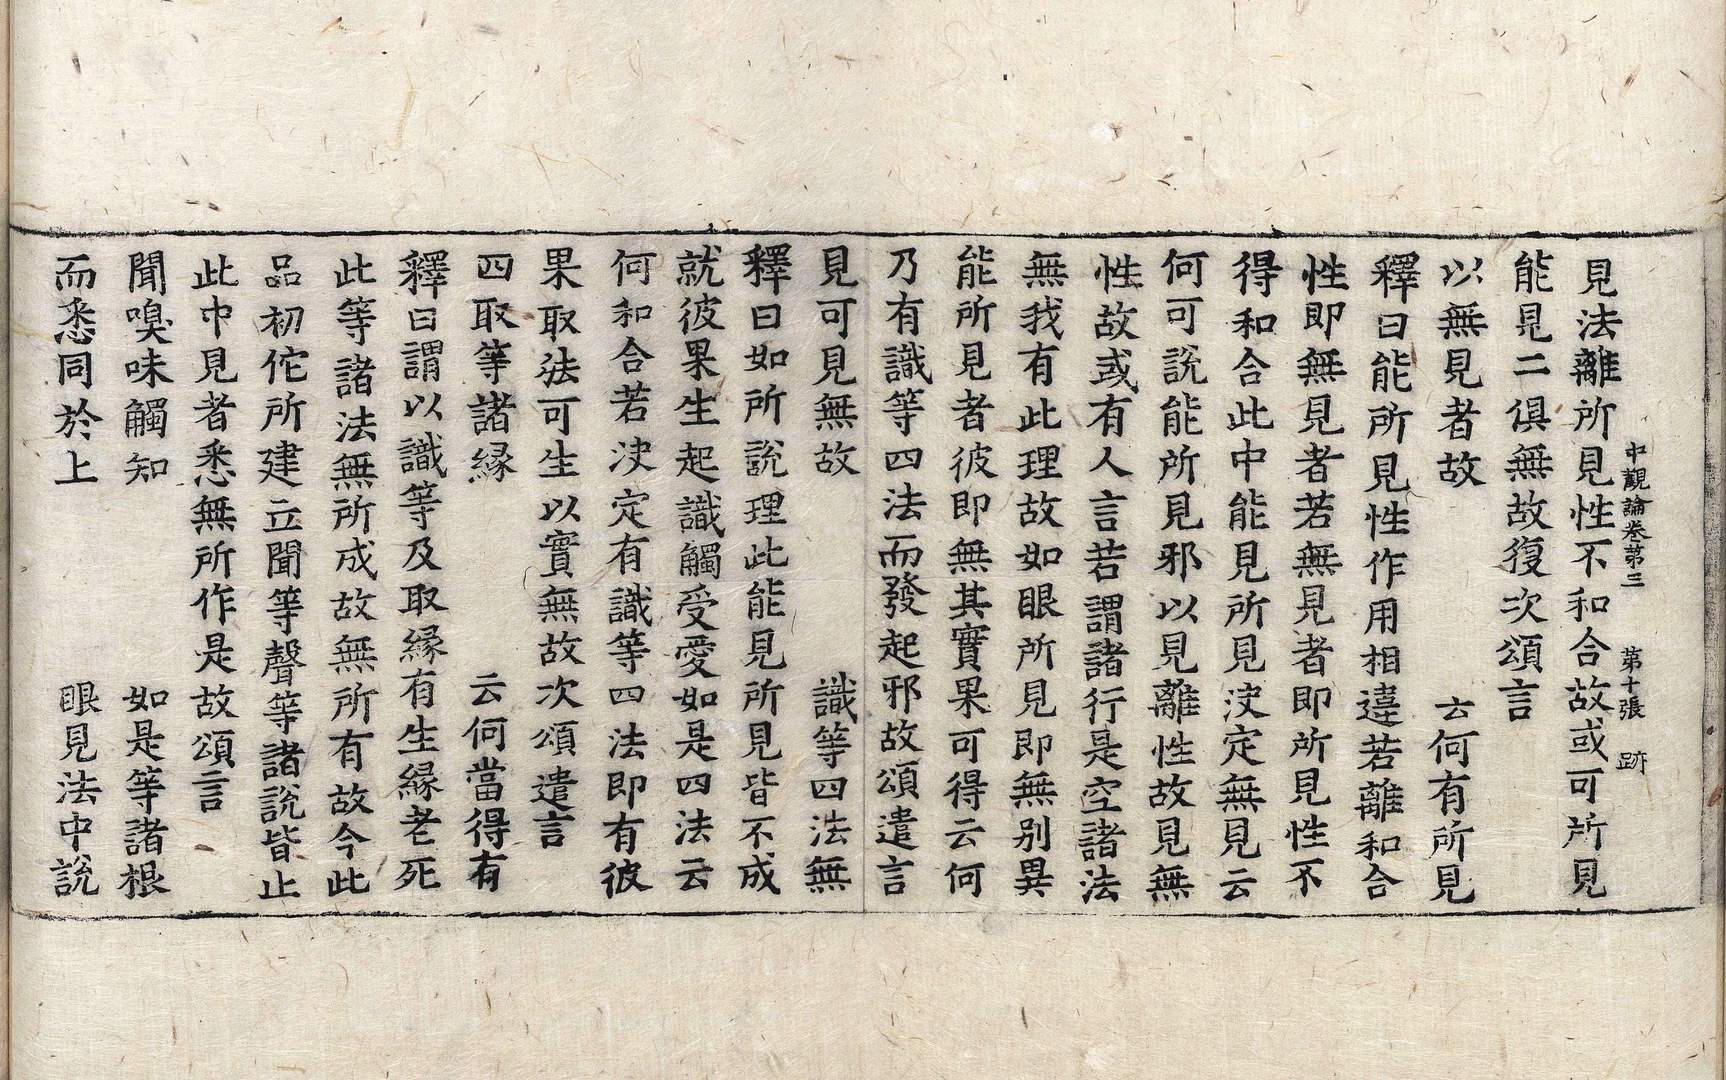 中觀論卷第三　第十張　跡
見法離所見性不和合故或可所見
能見二俱無故復次頌言
以無見者故　云何有所見
釋曰能所見性作用相違若離和合
性即無見者若無見者即所見性不
得和合此中能見所見決定無見云
何可說能所見邪以見離性故見無
性故或有人言若謂諸行是空諸法
無我有此理故如眼所見即無別異
能所見者彼即無其實果可得云何
乃有識等四法而發起邪故頌遣言
見可見無故　識等四法無
釋曰如所說理此能見所見皆不成
就彼果生起識觸受愛如是四法云
何和合若決定有識等四法即有彼
果取法可生以實無故次頌遣言
四取等諸緣　云何當得有
釋曰謂以識等及取緣有生緣老死
此等諸法無所成故無所有故今此
品初佗所建立聞等聲等諸說皆止
此中見者悉無所作是故頌言
聞嗅味觸知　如是等諸根
而悉同於上　眼見法中說